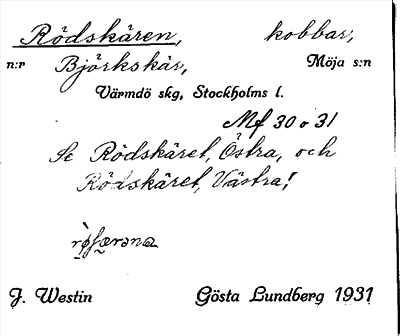 Rödskären, kobbar,
n:r Björkskär, Möja s:n
Värmdö skg, Stockholms l.
Mf 30 o 31
Se Rödskäret, Östra, och
Rödskäret, Västra!
J. Westin Gösta Lundberg 1931